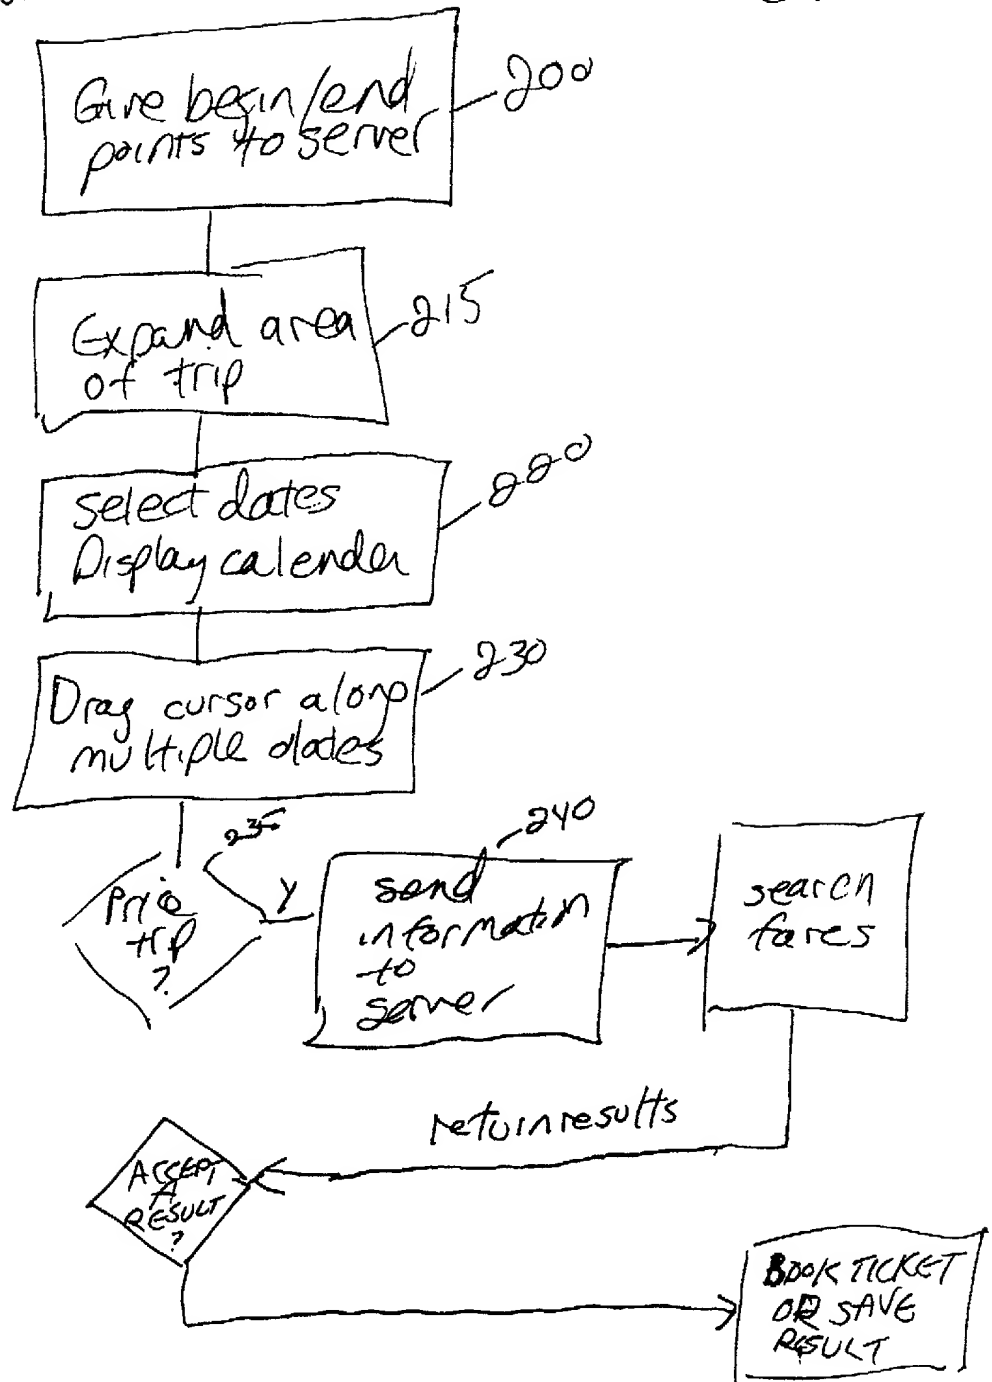 Give begin/end
points to server
200
Expand area
of trip
215
select dates
Display calender
220
Drag cursor along
multiple dates
230
Price
trip
?
235
Y
send
information
to
server
240
search
fares
return results
ACCEPT
A
RESULT
?
BOOK TICKET
OR SAVE
RESULT